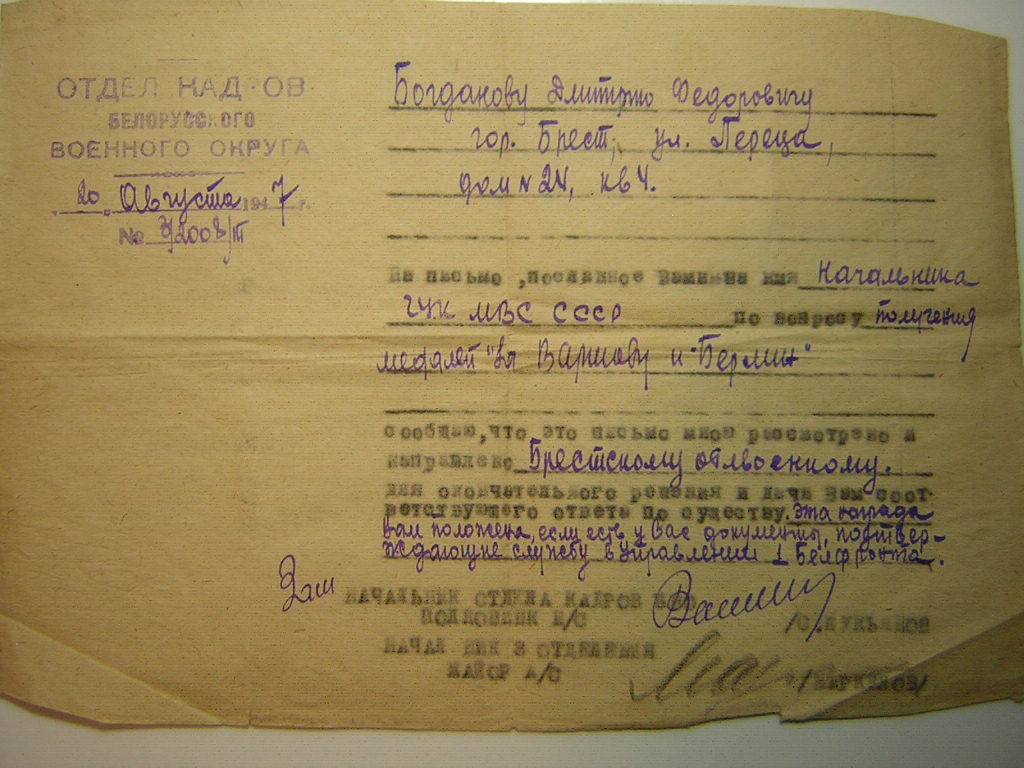 ОТДЕЛ КАДРОВ
БЕЛОРУССКОГО
ВОЕННОГО ОКРУГА
20 Августа 1947 г.
№ 3/2008/III
Богданову Дмитрию Федоровичу
гор. Брест, ул. Переца,
дом № 24, кв 4.
На письмо, посланное Вами на имя Начальника
ГУК МВС СССР по вопросу получения
медалей "За Варшову и "Берлин"
сообщаю, что это письмо мною рассмотрено и
направлено Брестскому облвоенкому.
для окончательного решения и дачи Вам соот-
ветствующего ответа по существу. Эта награда
вам положена, если есть у Вас документы, подтвер-
ждающие службу в управлении 1 Белфронта.
Зам НАЧАЛЬНИК ОТДЕЛА КАДРОВ БВО
ПОЛКОВНИК /С.ЛУКЬЯНОВ
НАЧАЛЬНИК 3 ОТДЕЛЕНИЯ
МАЙОР А/С